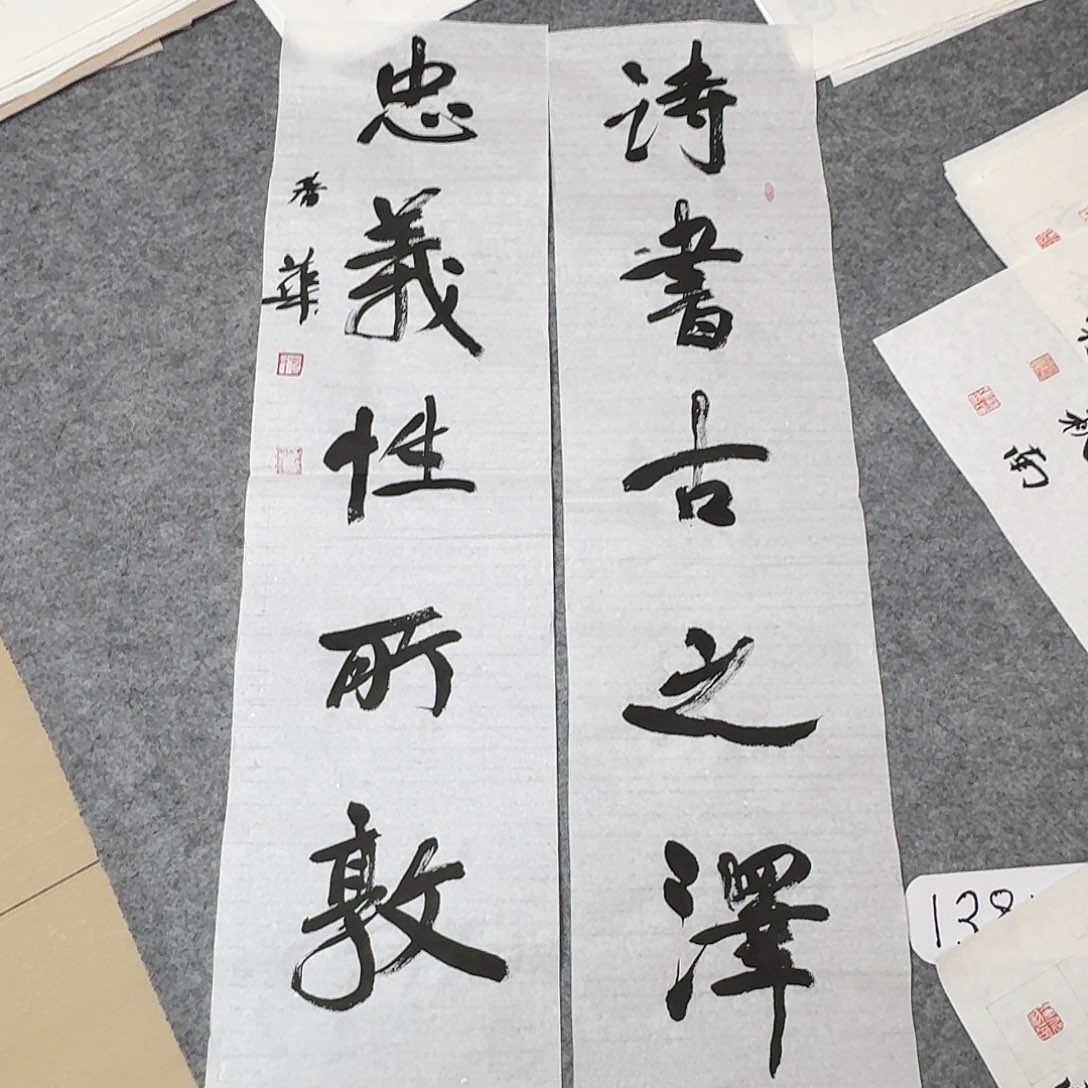 詩書古之澤
忠義性所敦
香華
南
138